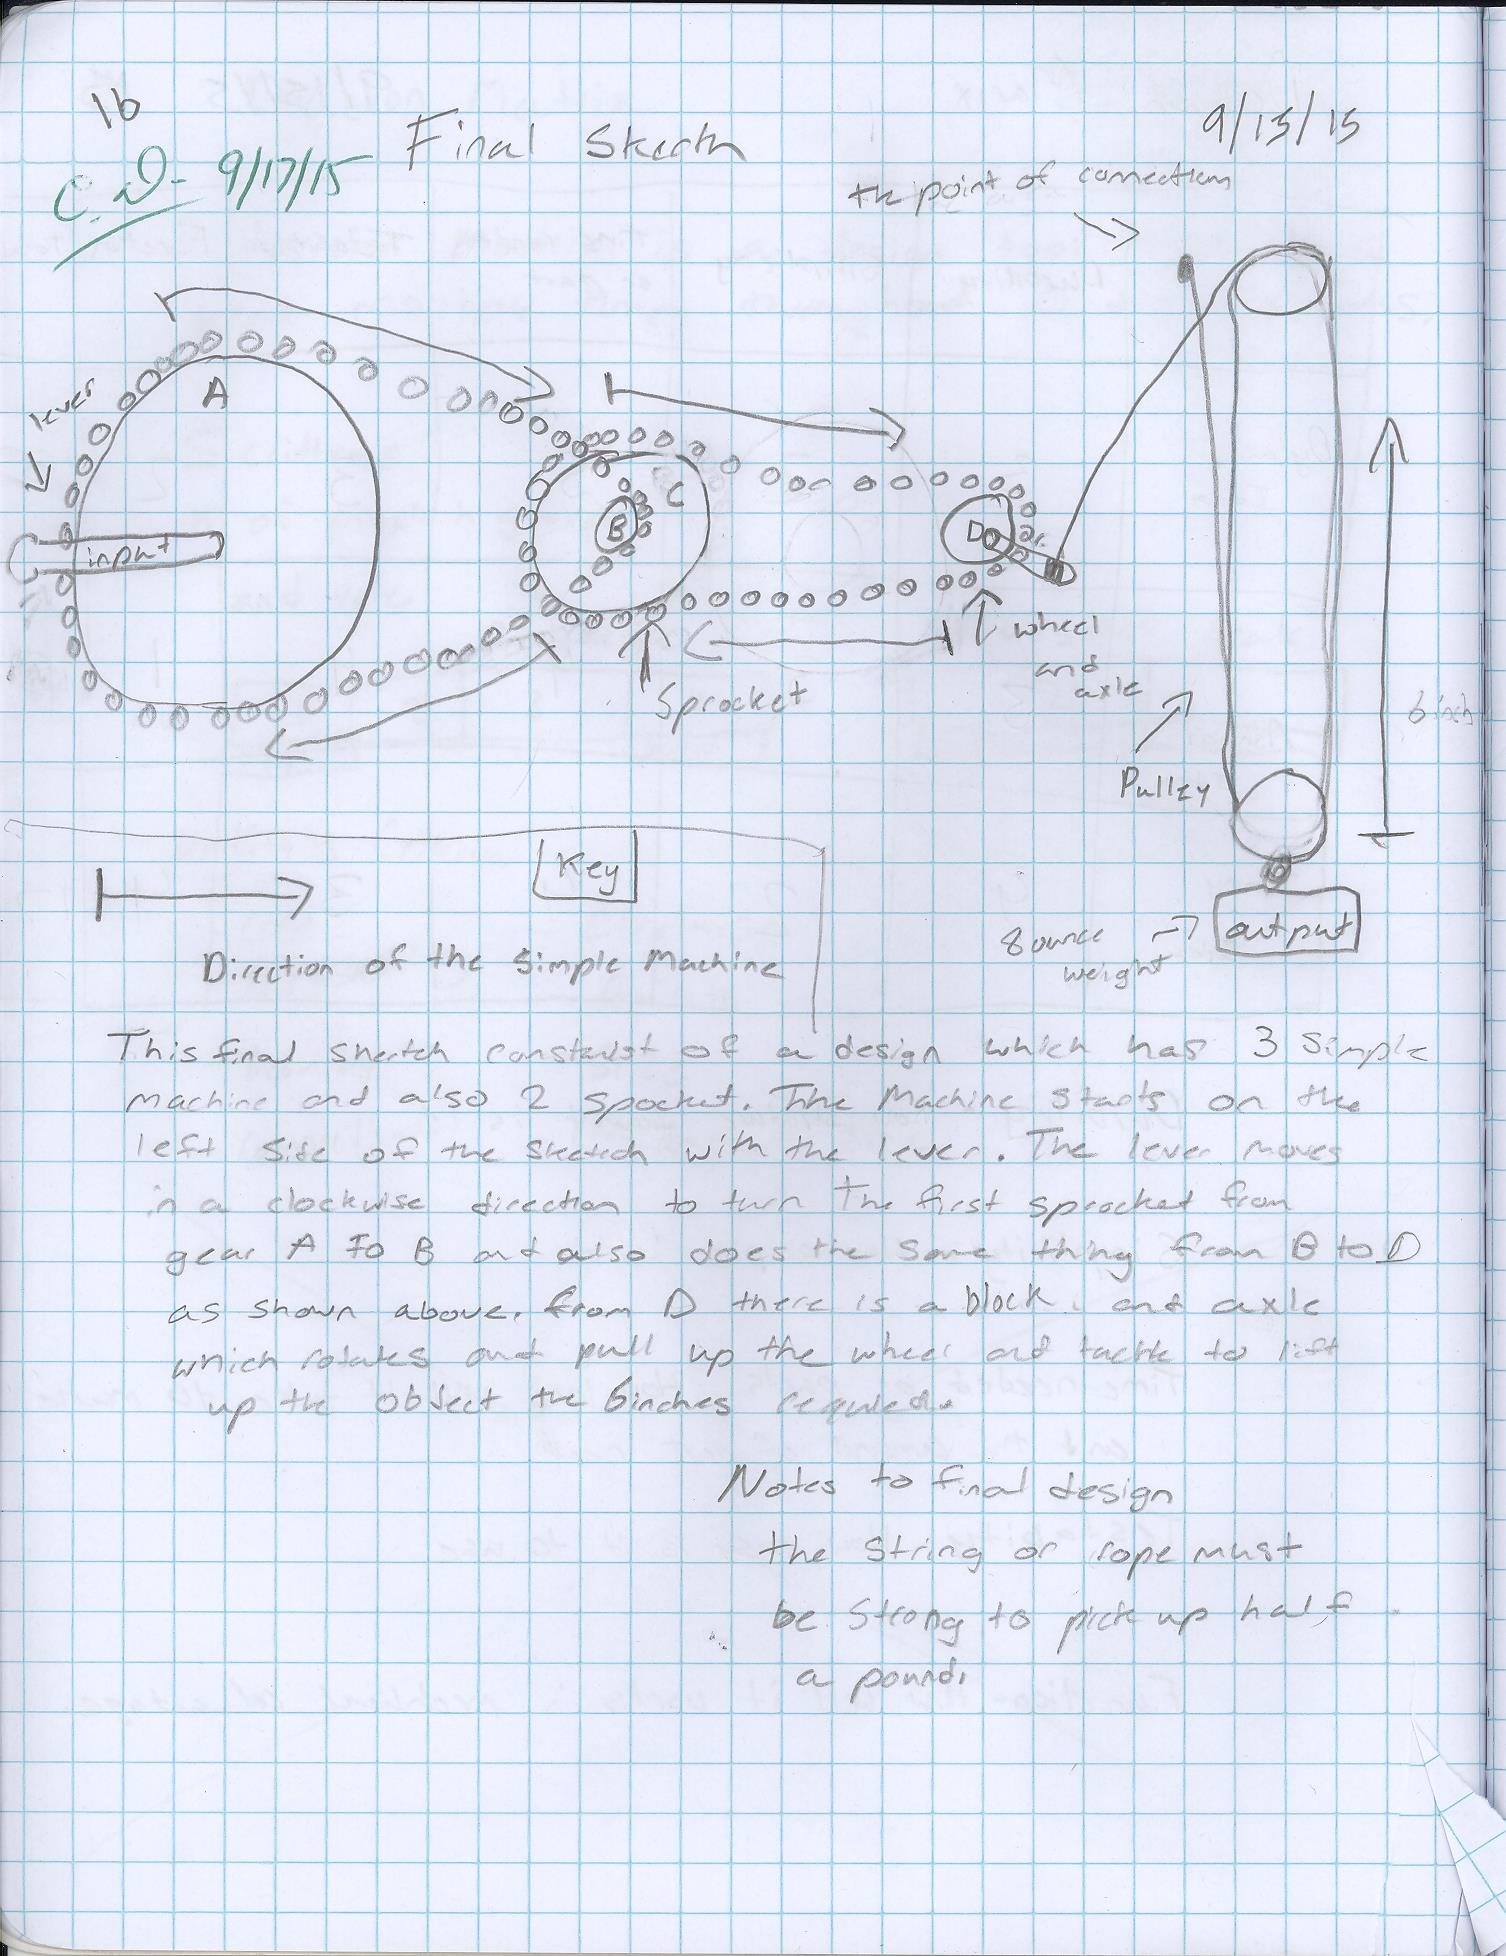 16
C.D. 9/17/15
Final Skecth
9/15/15
the point of connection
A
lever
input
B
C
D
Sprocket
wheel
and
axle
Pulley
6 inch
Key
Direction of the Simple Machine
8 ounce
weight
output
This final skertch constuist of a design which has 3 Simple
machine and also 2 spocket. The Machine starts on the
left side of the sketch with the lever. The lever moves
in a clockwise direction to turn the first sprocket from
gear A to B and also does the same thing from B to D
as shown above. from D there is a block and axle
which rotates and pull up the wheel and tackle to lift
up the object the 6inches required.
Notes to final design
the string or rope must
be strong to pick up half
a pound.